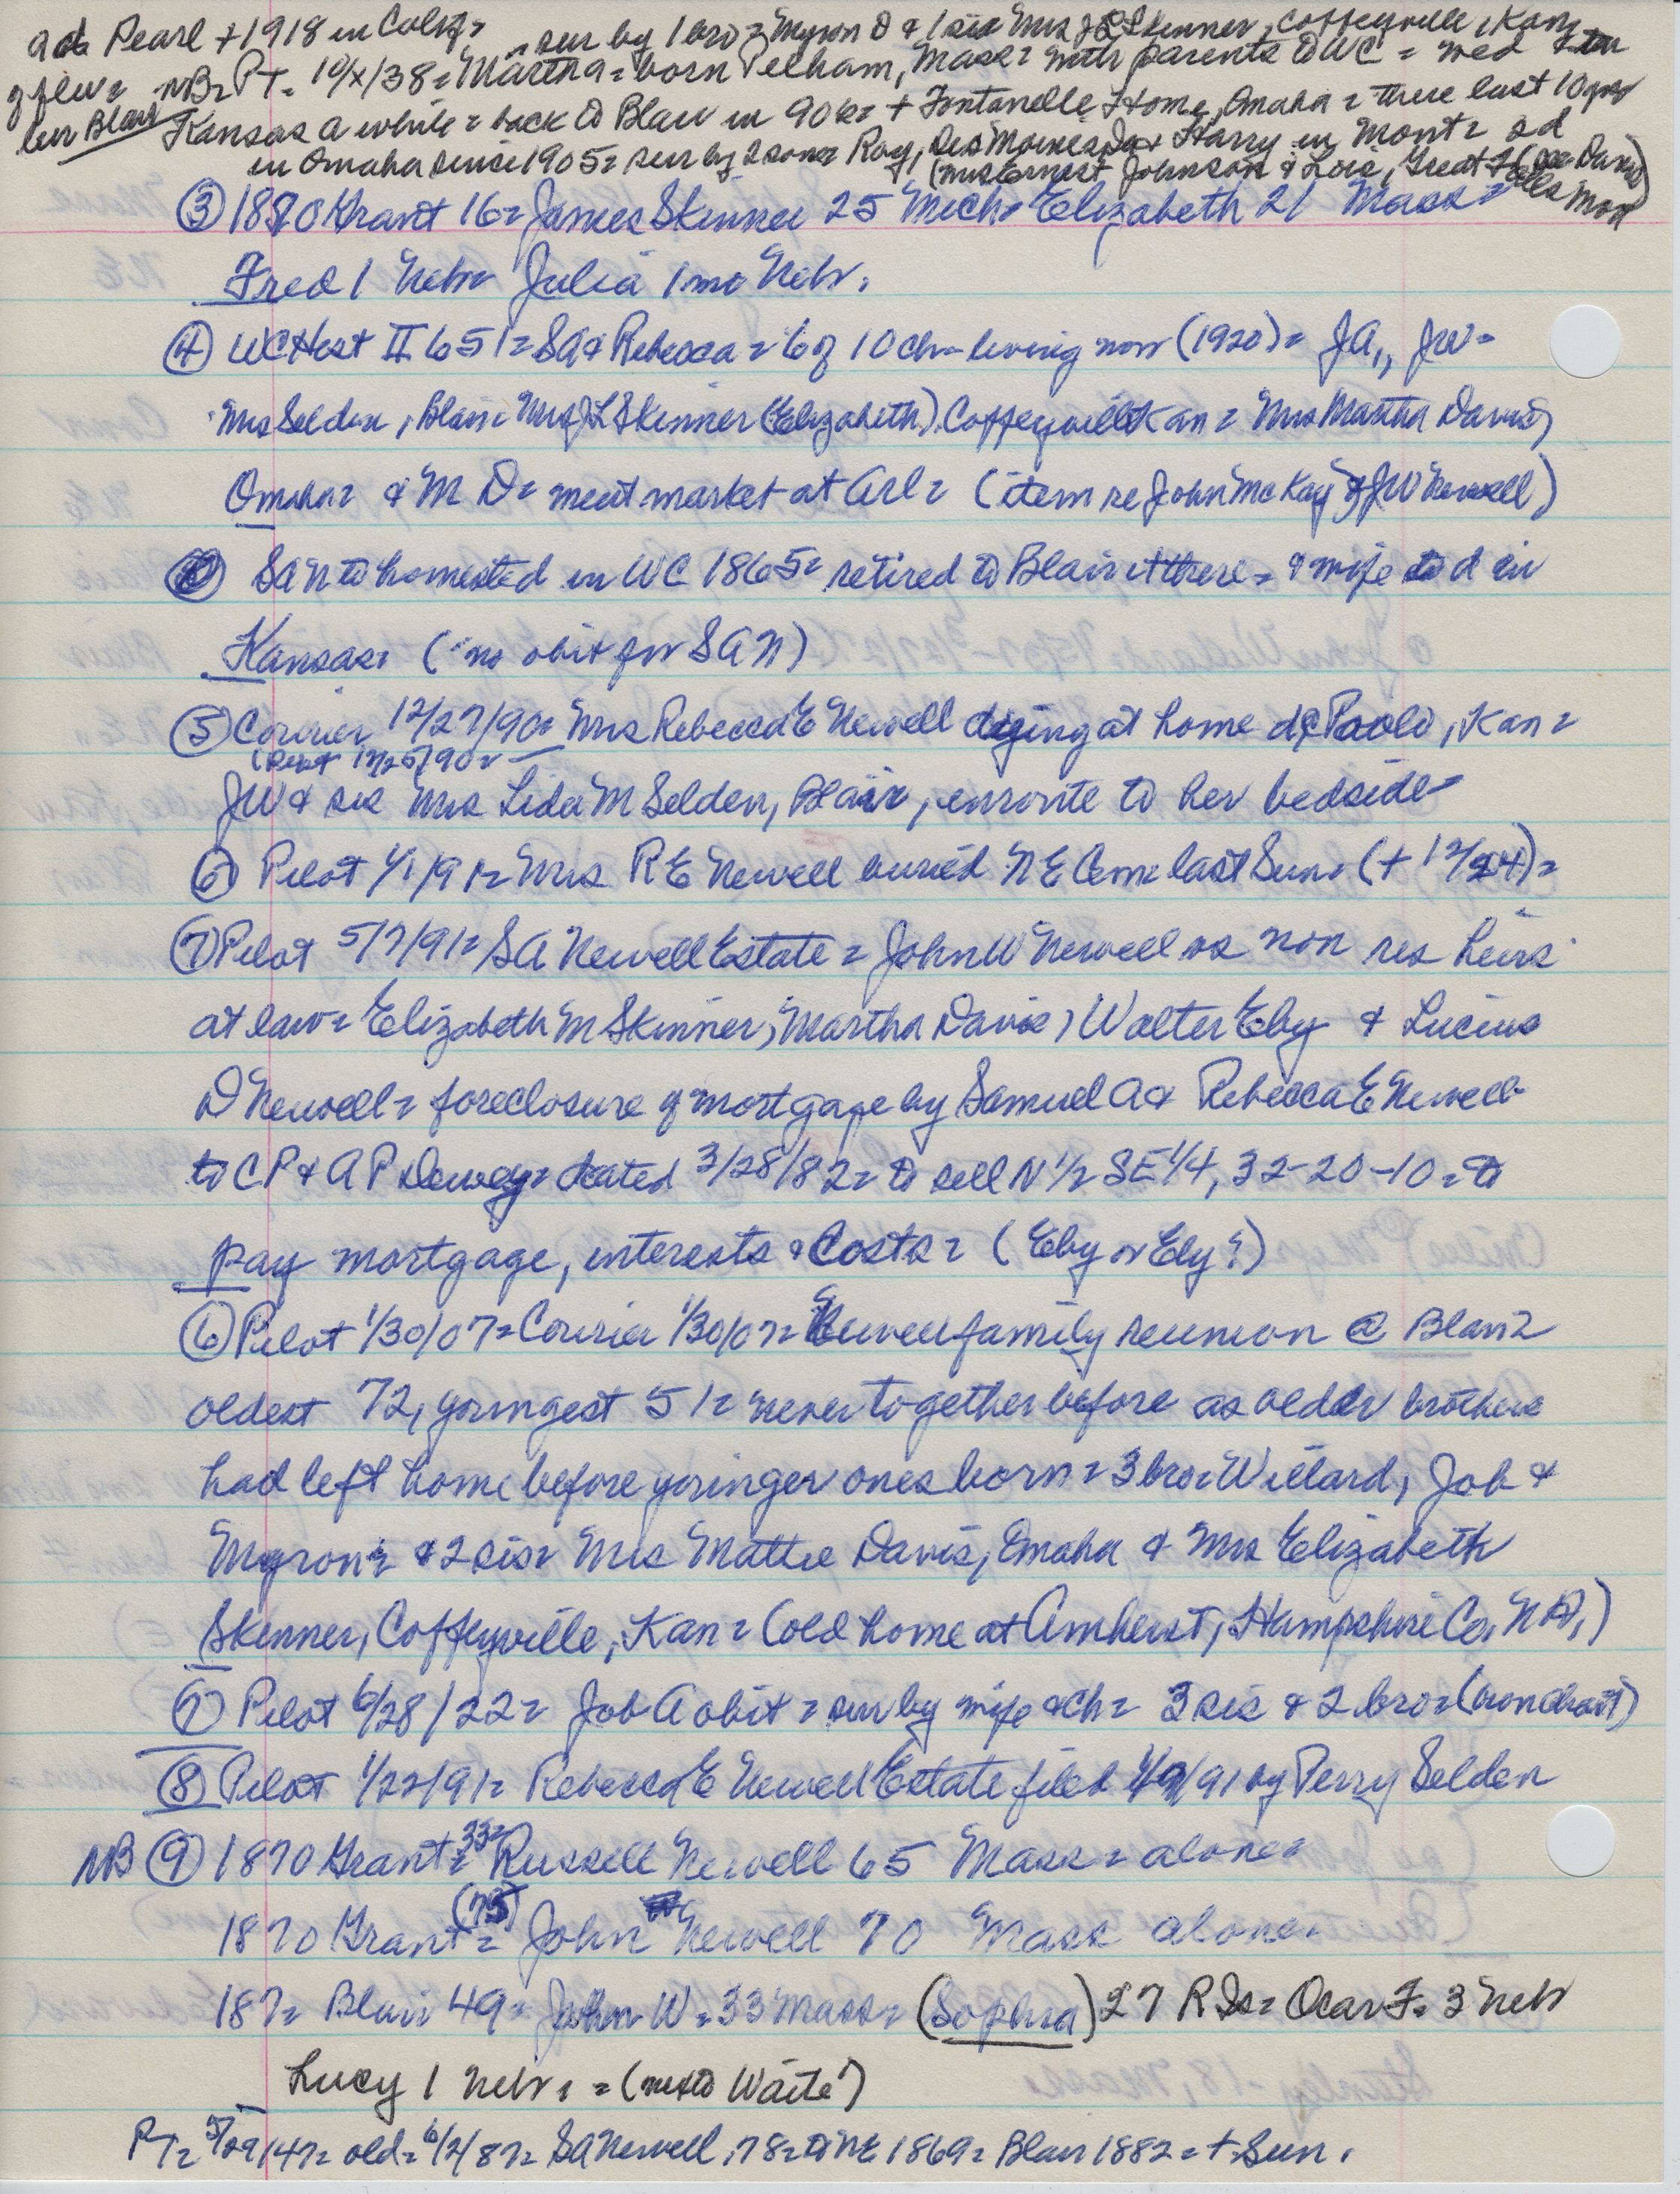 ad Pearl + 1918 in Calif =
sur by 1 bro = Myron D & 1 sis Mrs J L Skinner, Coffeyville, Kan
of flu = NB = PT = 10/x/38 = Martha = born Pelham, Mass = with parents to WC = wed
bur Blair Kansas a while = back to Blair in 90s = + Fontanelle Home, Omaha = there last 10 yrs
in Omaha since 1905 = sur by 2 sons = Roy, Des Moines Ia & Harry in Mont = 2d
(Mrs Ernest Johnson & Lois, Great Falls Mon) (see Davis)
③ 1870 Grant 16 = James Skinner 25 Mich = Elizabeth 21 Mass =
Fred 1 Nebr = Julia 1 mo Nebr.
④ WC Hist II 651 = SA & Rebecca = 6 of 10 ch = living now (1920) = JA,, JW =
Mrs Selden, Blair = Mrs J L Skinner (Elizabeth) Coffeyville Kan = Mrs Martha Davis,
Omaha = & M D = meat market at Arl = (item re John McKay & JW Newell)
SAN to homested in WC 1865 = retired to Blair + there = & wife to d in
Kansas = (no obit for SAN)
⑤ Courier 12/27/90 = Mrs Rebecca E Newell dying at home of Paola, Kan =
(Pilot 12/25/90 =
JW & sis Mrs Lida M Selden, Blair, enroute to her bedside =
⑥ Pilot 1/1/91 = Mrs R E Newell buried NE Cem last Sun = (+ 12/24) =
⑦ Pilot 5/7/91 = SA Newell Estate = John W Newell vs non res heirs
at law = Elizabeth M Skinner, Martha Davis, Walter Eby & Lucius
D Newell = foreclosure of mortgage by Samuel A & Rebecca E Newell
to C P & A P Dewey = dated 3/28/82 = to sell N 1/2 SE 1/4, 32-20-10 = to
pay mortgage, interests & costs = (Eby or Ely?)
⑥ Pilot 1/30/07 = Courier 1/30/07 = Newell family reunion @ Blair =
oldest 72, youngest 51 = never together before as older brothers
had left home before younger ones born = 3 bro = Willard, Job &
Myron = & 2 sis = Mrs Mattie Davis, Omaha & Mrs Elizabeth
Skinner, Coffeyville, Kan = (old home at Amherst, Hampshire Co, NH,)
⑦ Pilot 6/28/22 = Job A obit = sur by wife & ch = 3 sis & 2 bro =
⑧ Pilot 1/22/91 = Rebecca E Newell Estate filed 1/9/91 by Perry Selden
NB ⑨ 1870 Grant = 33 = Russell Newell 65 Mass = alone =
1870 Grant = (75) John Newell 70 Mass alone =
187= Blair 49 = John W = 33 Mass = (Sophia) 27 R Is = Oscar F = 3 Nebr
Lucy 1 Nebr = = (next to Waite)
PT = 5/29/47 = old = 6/2/87 = SA Newell, 78 = to NE 1869 = Blair 1882 = + Sun.